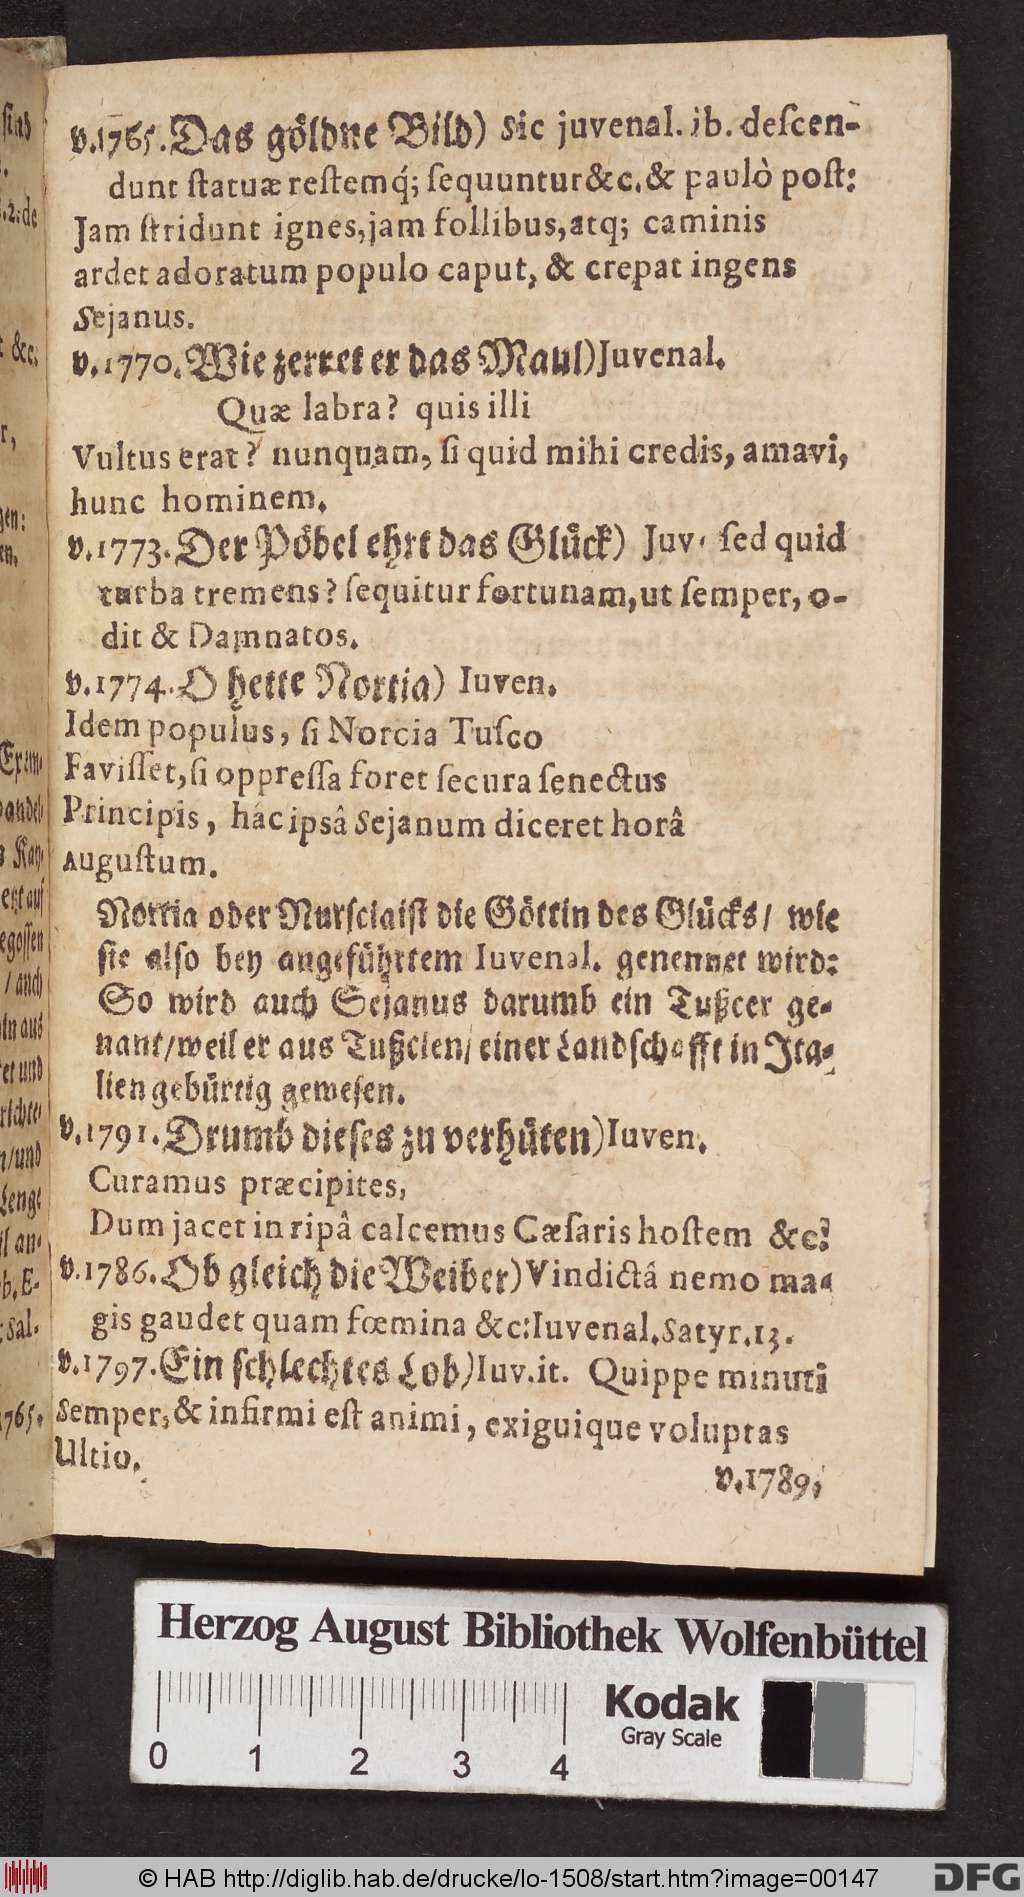 v.1765. Das göldne Bild) Sic juvenal. ib. deſcen-
dunt ſtatuæ reſtemq́; ſequuntur &c. & paulò poſt:
Jam ſtridunt ignes, jam follibus, atq; caminis
ardet adoratum populo caput, & crepat ingens
Sejanus.
v.1770. Wie zerret er das Maul) Juvenal.
Quæ labra? quis illi
Vultus erat? nunquam, ſi quid mihi credis, amavi,
hunc hominem.
v.1773. Der Pöbel ehrt das Glück) Juv. ſed quid
turba tremens? ſequitur fortunam, ut ſemper, o-
dit & Damnatos.
v.1774. O hette Nortia) Iuven.
Idem populus, ſi Norcia Tuſco
Faviſſet, ſi oppreſſa foret ſecura ſenectus
Principis, hác ipsâ Sejanum diceret horâ
Auguſtum.
Nortia oder Nurſcia iſt die Göttin des Glücks/ wie
ſie alſo bey angeführtem Iuvenal. genennet wird:
So wird auch Sejanus darumb ein Tußcer ge-
nant/ weil er aus Tußcien/ einer Landſchafft in Ita-
lien gebürtig geweſen.
v.1791. Drumb dieſes zu verhüten) Iuven.
Curamus præcipites,
Dum jacet in ripâ calcemus Cæſaris hoſtem &c.
v.1786. Ob gleich die Weiber) Vindictâ nemo ma-
gis gaudet quam fœmina &c: Iuvenal. Satyr. 13.
v.1797. Ein ſchlechtes Lob) Iuv. it. Quippe minuti
Semper, & infirmi eſt animi, exiguique voluptas
Ultio.
v.1789.
Herzog August Bibliothek Wolfenbüttel
Kodak
Gray Scale
0 1 2 3 4
© HAB http://diglib.hab.de/drucke/lo-1508/start.htm?image=00147
DFG